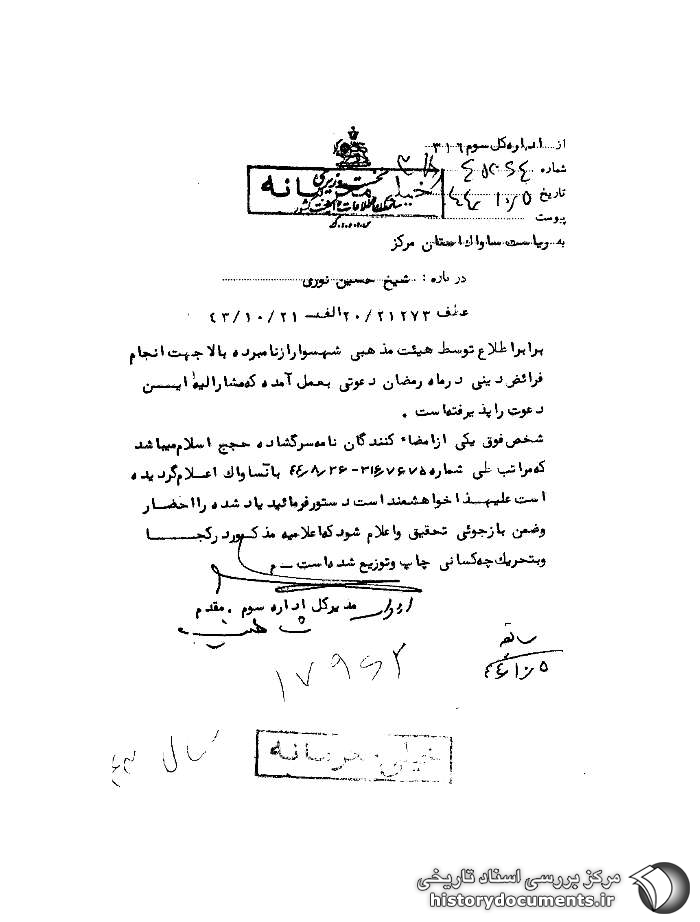 از اداره کل سوم ۳۱۶
شماره
تاریخ
پیوست
خیلی محرمانه
نخست وزیری
سازمان اطلاعات و امنیت کشور
س.ا.و.ا.ك
به ریاست ساواك استان مرکز
درباره : شیخ حسین نوری
عطف ۲۰/۲۱۲۷۳الف - ۴۳/۱۰/۲۱
برابر اطلاع توسط هیئت مذهبی شهسوار از نامبرده بالا جهت انجام
فرائض دینی در ماه رمضان دعوتی بعمل آمده که مشارالیه این
دعوت را پذیرفته است .
شخص فوق یکی از امضاء کنندگان نامه سرگشاده حجج اسلام میباشد
که مراتب طی شماره ۳۱۶۷۶۷۵ - ۴۴/۸/۲۶ بآن ساواك اعلام گردیده
است علیهذا خواهشمند است دستور فرمائید یاد شده را احضار
وضمن بازجوئی تحقیق واعلام شود که اعلامیه مذکور در کجا
وبتحریك چه کسانی چاپ وتوزیع شده است - م
مدیر کل اداره سوم . مقدم
از طرف
سابقه
سال ۴۳
خیلی محرمانه
مرکز بررسی اسناد تاریخی
historydocuments.ir